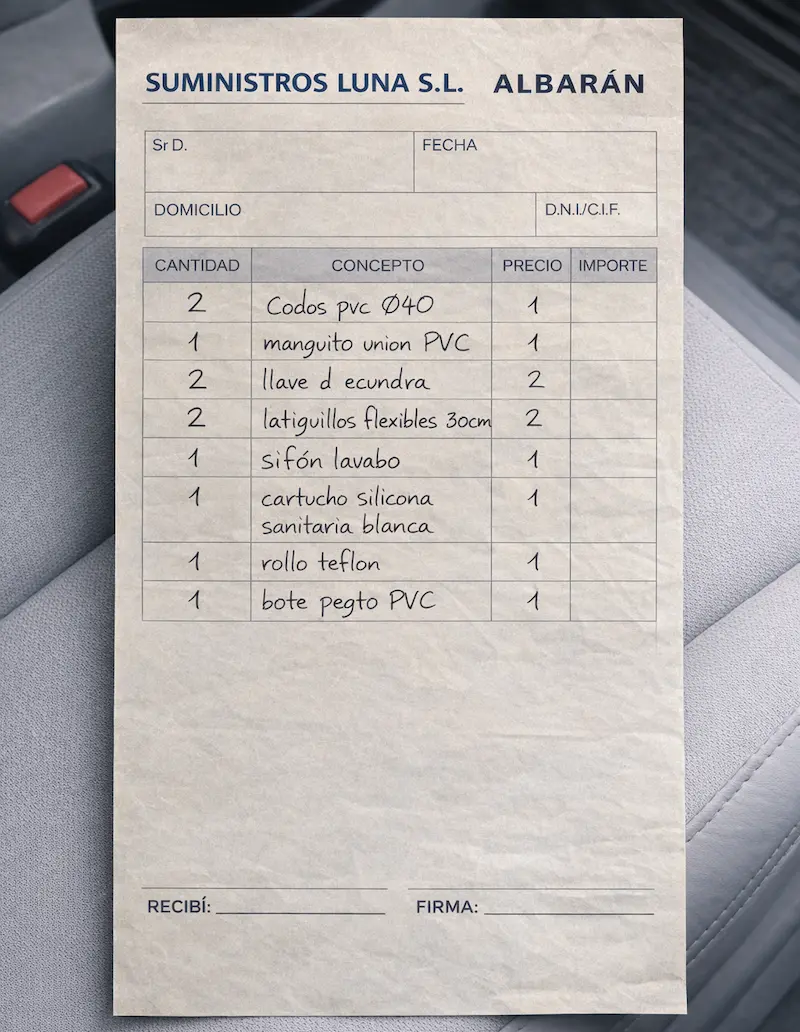 SUMINISTROS LUNA S.L. ALBARÁN
Sr D. FECHA
DOMICILIO D.N.I./C.I.F.
CANTIDAD CONCEPTO PRECIO IMPORTE
2 Codos pvc Ø40 1
1 manguito union PVC 1
2 llave d ecundra 2
2 latiguillos flexibles 30cm 2
1 sifón lavabo 1
1 cartucho silicona 1
sanitaria blanca
1 rollo teflon 1
1 bote pegto PVC 1
RECIBÍ: FIRMA: